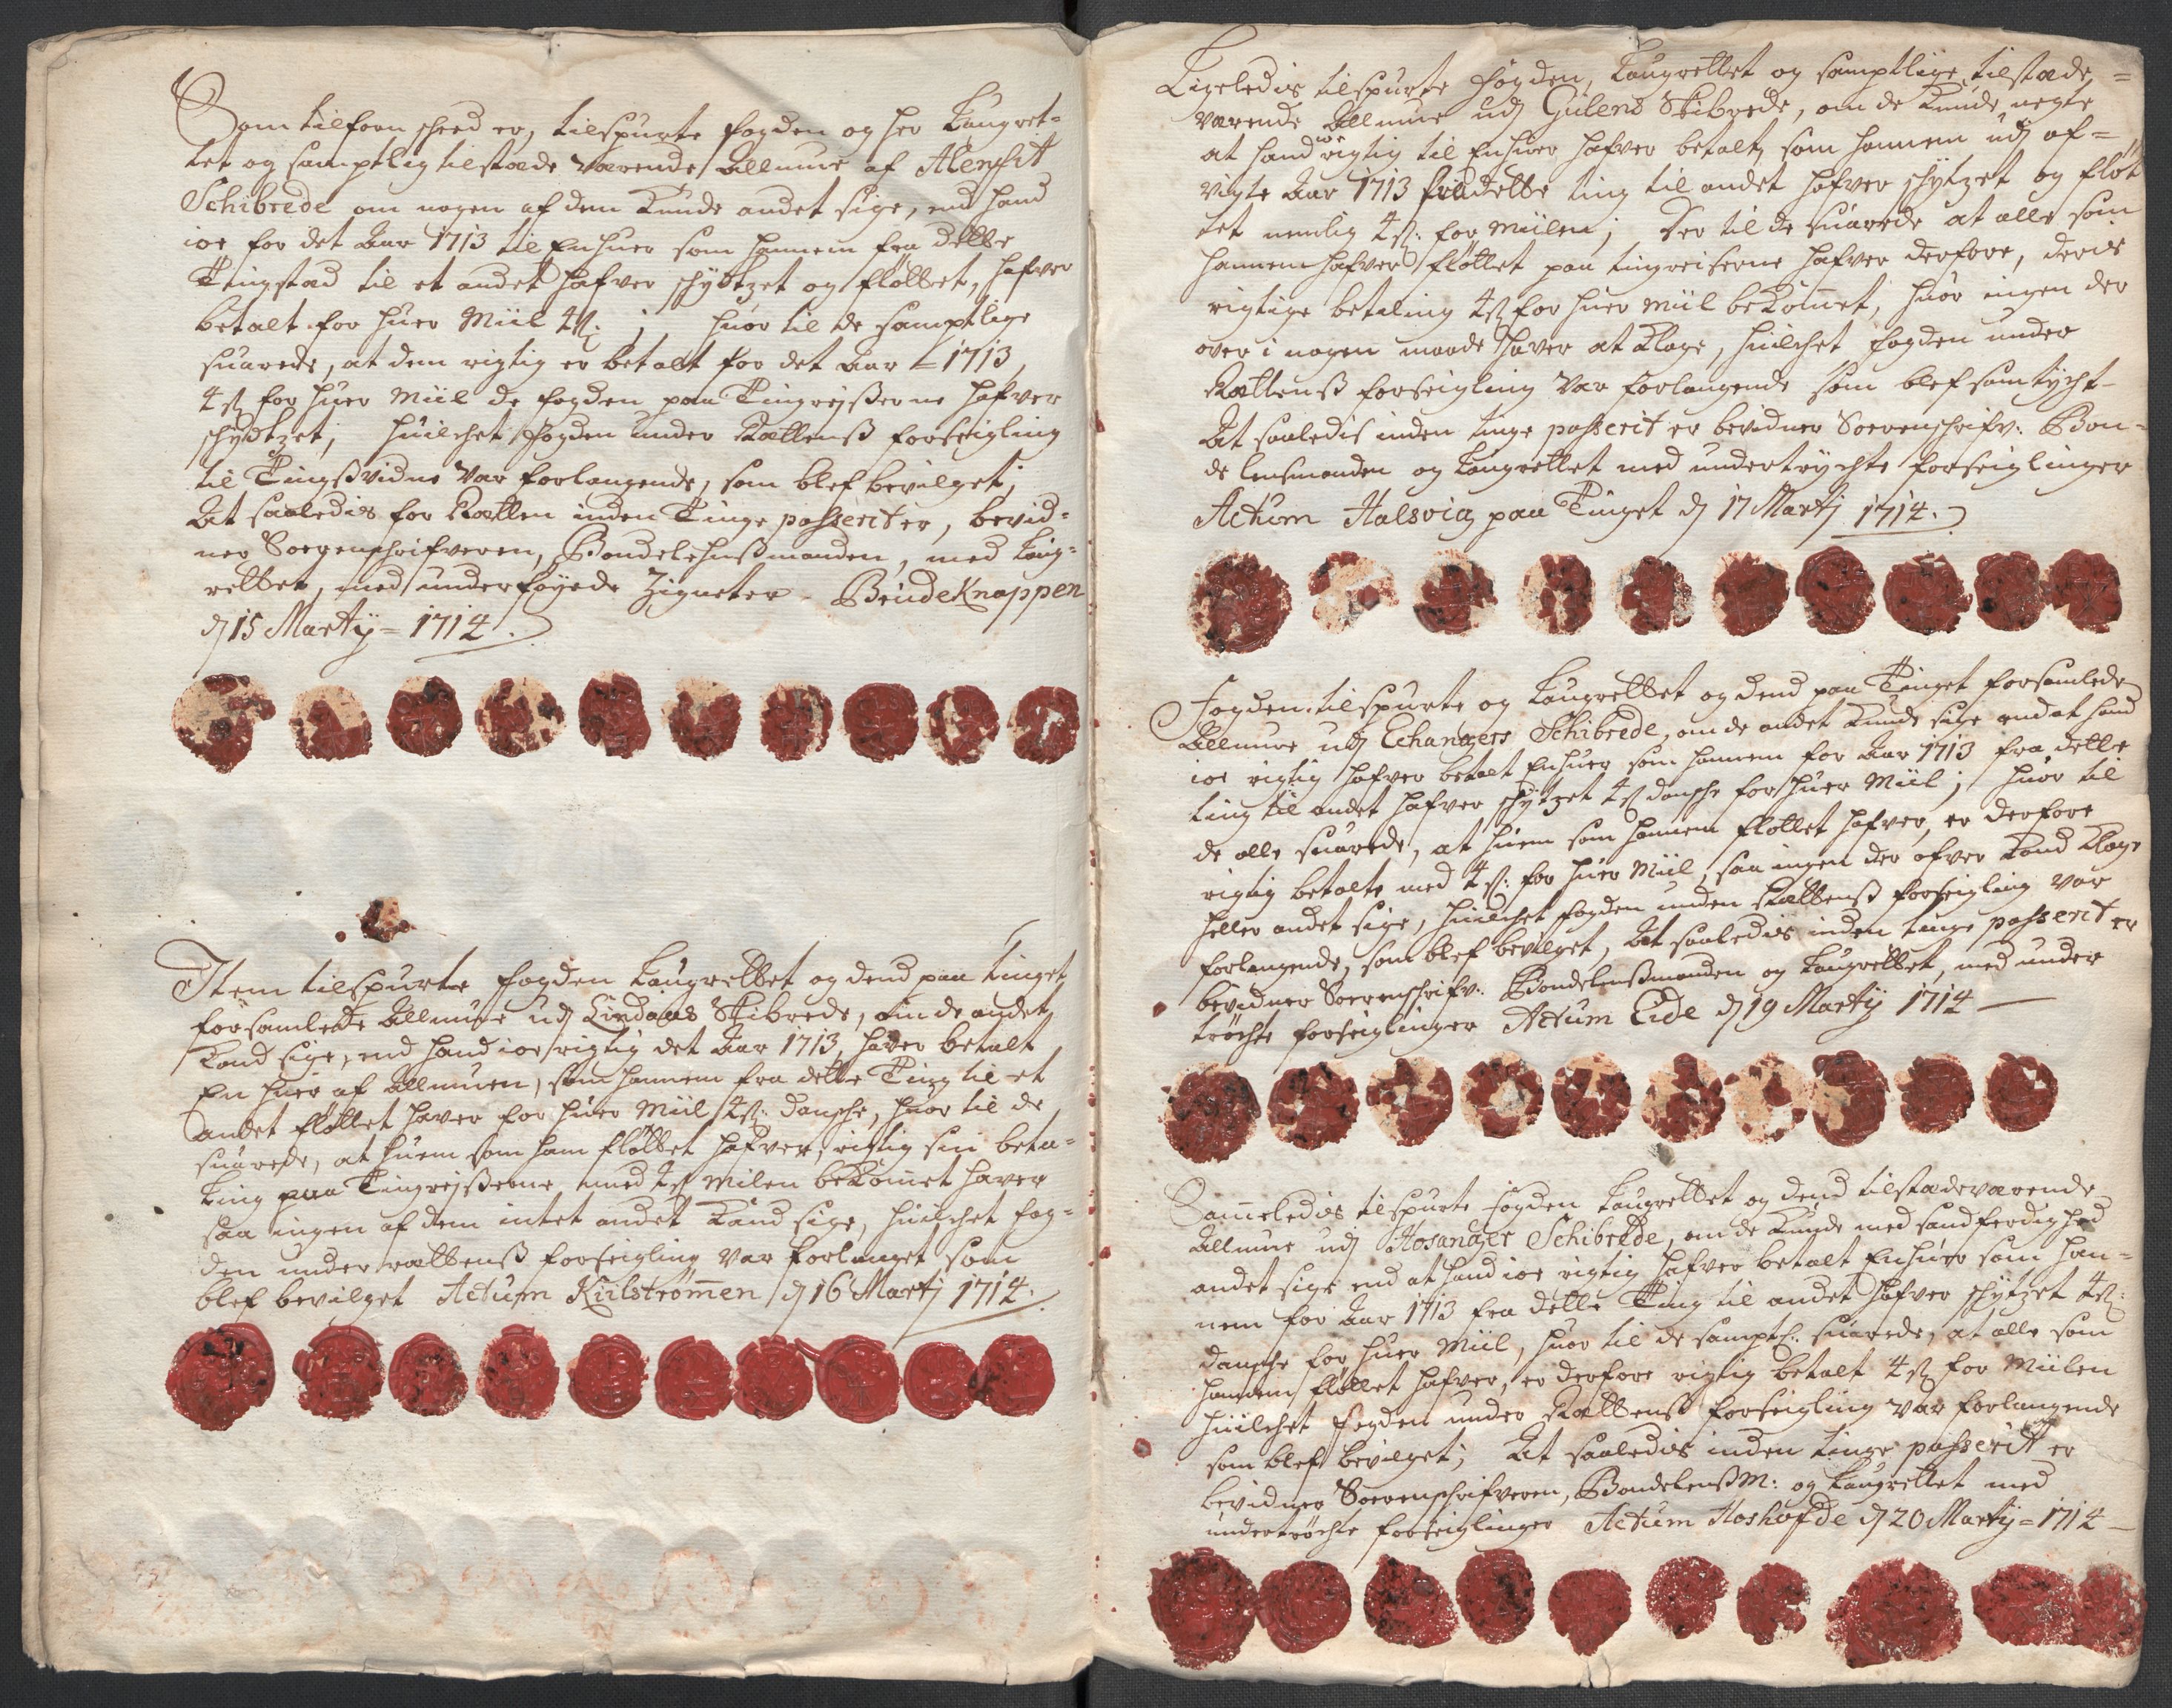 Som tilforn scheed er, tilspurte fogden og her Laugret-
tet og samptlig tilstæde værende Allmue af Alenfit
Schibrede om nogen af dem Kunde andet sige, end hand
ioe for det Aar 1713 til Enhuer som hannem fra dette
Tingstæd til et andet hafver schydtzet og fløttet, hafver
betalt for huer Miil 4 s: ; huor til de samptlige
suarede, at dem rigtig er betalt for det Aar 1713,
4 s for huer Miil de fogden paa Tingreyßerne hafver
schydtzet; huilchet Fogden under Rættenß forseigling
til Tingßvidne var forlangende, som blef bevilget;
At saaledis for Rætten inden Tinge passerit er, bevid-
ner Sorenschrifveren, Bondelehnßmanden, med Laug-
rettet, med underføyede Zigneter. Beudeknappen
d 15 Martij = 1714.
Item tilspurte fogden Laugrettet og dend paa tinget
forsamlede Allmue udj Lindaas Skibrede, om de andet
Kand sige, end hand ioe rigtig det Aar 1713, haver betalt
En huer af Allmuen, som hannem fra dette Ting til et
andet fløttet haver for huer Miil 4 s: dansche, huor til de
suarede, at huem som ham fløttet hafver, rigtig sin beta-
ling paa Tingreyßerne med 4 s Milen bekommet haver
saa ingen af dem intet andet Kand sige, huilchet fog-
den under rættenß forseigling var forlanget som
blef bevilget Actum Kiilstrømmen d 16 Martj 1714.
Ligeledis tilspurte fogden, Laugrettet og samptlige tilstæde =
værende Allmue udj Gulens Skibrede, om de Kunde negte
at hand ioe rigtig til Enhuer hafver betalt, som hannem udj af =
vigte Aar 1713 fra dette ting til andet hafver schytzet og fløt
tet nemlig 4 s: for Miilen; Der til de suarede at alle som
hannem hafver fløttet paa tingreiserne hafver derfore, deris
rigtige betaling 4 s for huer Miil bekommet, huor ingen der
over i nogen maade haver at Klage, huilchet fogden under
Rættenß forseigling var forlangende som blef samtycht.
At saaledis inden tinge passerit er bevidner Sorenschrifv: Bon-
de lensmanden og Laugrettet med undertrychte forseiglinger
Actum Halsvig paa Tinget d 17 Martj 1714.
Fogden tilspurte og Laugrettet og dend paa Tinget forsamlede
Allmue udj Echangers Schibrede, om de andet Kunde sige end at hand
ioe rigtig hafver betalt Enhuer som hannem for Aar 1713 fra dette
ting til andet hafver schytzet 4 s dansche for huer Miil; huor til
de alle suarede, at huem som hannem fløttet hafver, er derfore
rigtig betalte med 4 s: for huer Miil, saa ingen der ofver Kand Klage
heller andet sige, huilchet fogden under Rættenß forseigling var
forlangende, som blef bevilget, At saaledis inden tinge passerit er
bevidner Sorenschrifv: Bondelenßmanden og Laugrettet, med under
trøchte forseiglinger Actum Eide d 19 Martij 1714
Sammeledis tilspurte fogden Laugrettet og dend tilstædeværende
Allmue udj Hosanger Schibrede, om de Kunde med sandferdighed
andet sige end at hand ioe rigtig hafver betalt Enhuer som han-
nem for Aar 1713 fra dette Ting til andet hafver schytzet 4 s:
dansche for huer Miil, huor til de samptl: suarede, at alle som
hannem fløttet hafver, er derfore rigtig betalt 4 s for Miilen
huilchet fogden under Rættenß forseigling var forlangende
som blef bevilget; At saaledis inden tinge passerit er
bevidner Sorenschrifveren, Bondelenßm: og Laugrettet med
undertrøchte forseiglinger Actum Hoshofde d 20 Martij = 1714